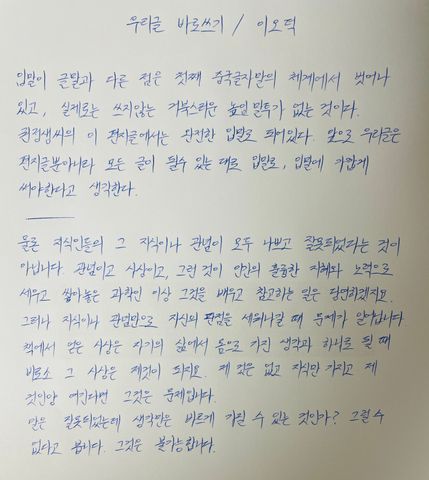 우리글 바로쓰기 / 이오덕
입말이 글말과 다른 점은 첫째 중국글자말의 체계에서 벗어나
있고, 실제로는 쓰지않는 거북스러운 높임말투가 없는 것이다.
권정생씨의 이 편지글에서는 완전한 입말로 되어있다. 앞으로 우리글은
편지글뿐아니라 모든 글이 될수 있는 대로 입말로, 입말에 가깝게
써야한다고 생각한다.
물론 지식인들의 그 지식이나 관념이 모두 나쁘고 잘못되었다는 것이
아닙니다. 관념이고 사상이고, 그런 것이 인간의 훌륭한 지혜와 노력으로
세우고 쌓아놓은 과학인 이상 그것을 배우고 참고하는 일은 당연하겠지요.
그러나 지식이나 관념만으로 자신의 관점을 세워나갈 때 문제가 일어납니다
책에서 얻은 사상은 자기의 삶에서 몸으로 가진 생각과 하나로 될 때
비로소 그 사상은 제것이 되지요. 제 것은 없고 지식만 가지고 제
것인양 여긴다면 그것은 문제입니다.
말은 잘못되었는데 생각만은 바르게 가질 수 있는 것인가? 그럴 수
없다고 봅니다. 그것은 불가능합니다.